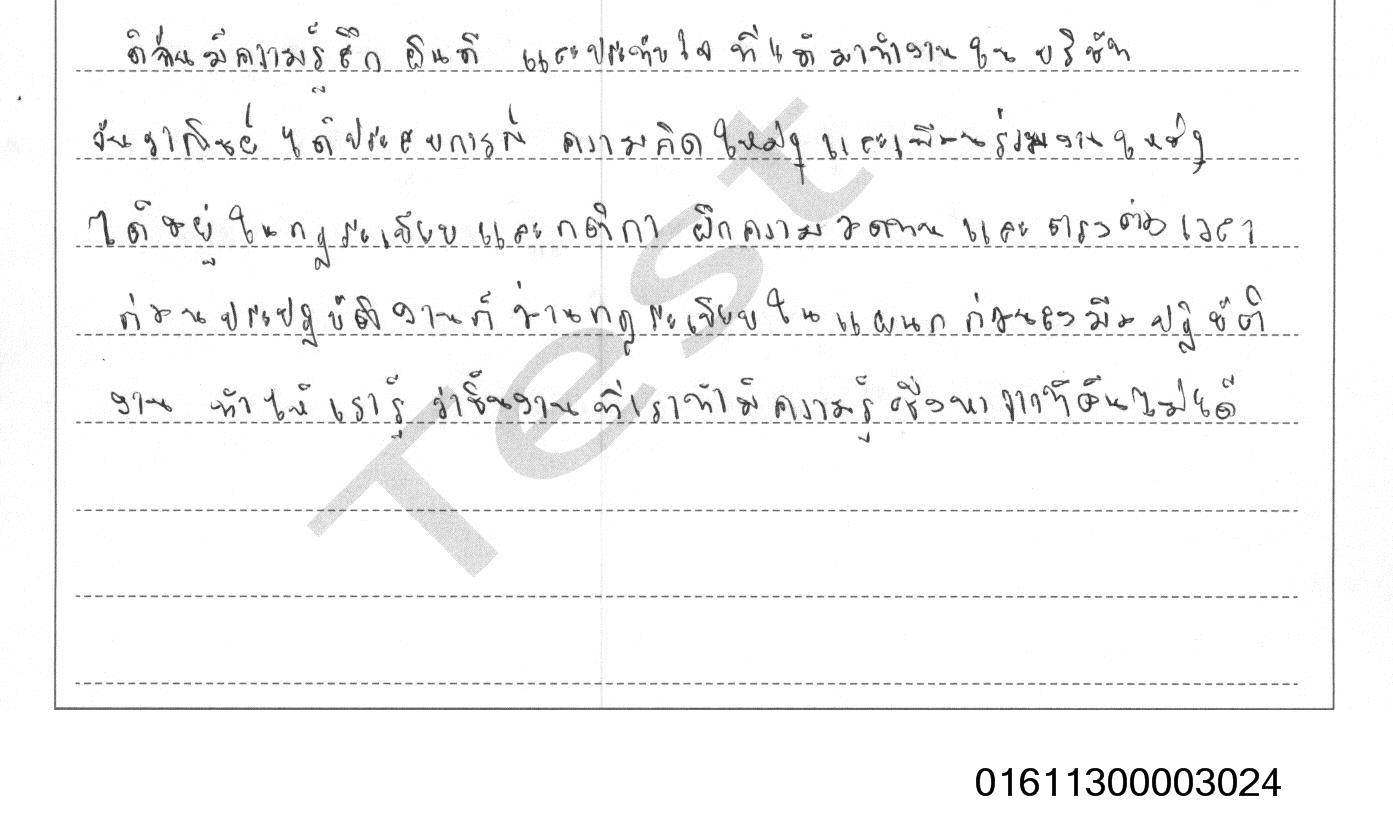 ดิฉันมีความรู้สึก ยินดี และประทับใจ ที่ได้มาทำงานใน บริษัท
ได้ประสบการณ์ ความคิดใหม่ๆ และเพื่อนร่วมงานใหม่ๆ
ได้อยู่ในกฎระเบียบและกติกา ฝึกความอดทน และตรงต่อเวลา
ก่อนปฏิบัติงานก็อ่านกฎระเบียบในแผนกก่อนลงมือปฏิบัติ
งาน ทำให้เรารู้ ว่าชิ้นงานที่เราทำมีความรู้ ซึ่งหาจากที่อื่นไม่ได้
Test
01611300003024